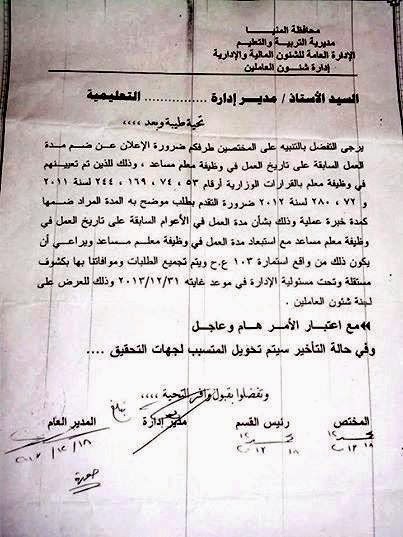 محافظة المنيا
مديرية التربية والتعليم
الإدارة العامة للشئون المالية والإدارية
إدارة شئون العاملين
السيد الأستاذ / مدير إدارة ................ التعليمية
تحية طيبة وبعد ،،،،
يرجى التفضل بالتنبيه على المختصين طرفكم ضرورة الإعلان عن ضم مدة
العمل السابقة على تاريخ العمل في وظيفة معلم مساعد ، وذلك للذين تم تعيينهم
في وظيفة معلم بالقرارات الوزارية أرقام ٥٣ ، ٧٤ ، ١٦٩ ، ٢٤٤ لسنة ٢٠١١
و ٧٢ ، ٢٨٠ لسنة ٢٠١٢ ضرورة التقدم بطلب موضح به المدة المراد ضمها
كمدة خبرة عملية وذلك بشأن مدة العمل في الأعوام السابقة على تاريخ العمل في
وظيفة معلم مساعد مع استبعاد مدة العمل في وظيفة معلم مساعد ويراعي أن
يكون ذلك من واقع استمارة ١٠٣ ع.ح ويتم تجميع الطلبات وموافاتنا بها بكشوف
مستقلة وتحت مسئولية الإدارة في موعد غايته ٢٠١٣/١٢/٣١ وذلك للعرض على
لجنة شئون العاملين .
مع اعتبار الأمر هام وعاجل
وفي حالة التأخير سيتم تحويل المتسبب لجهات التحقيق ....
وتفضلوا بقبول وافر التحية ،،،،
المختص رئيس القسم مدير إدارة المدير العام